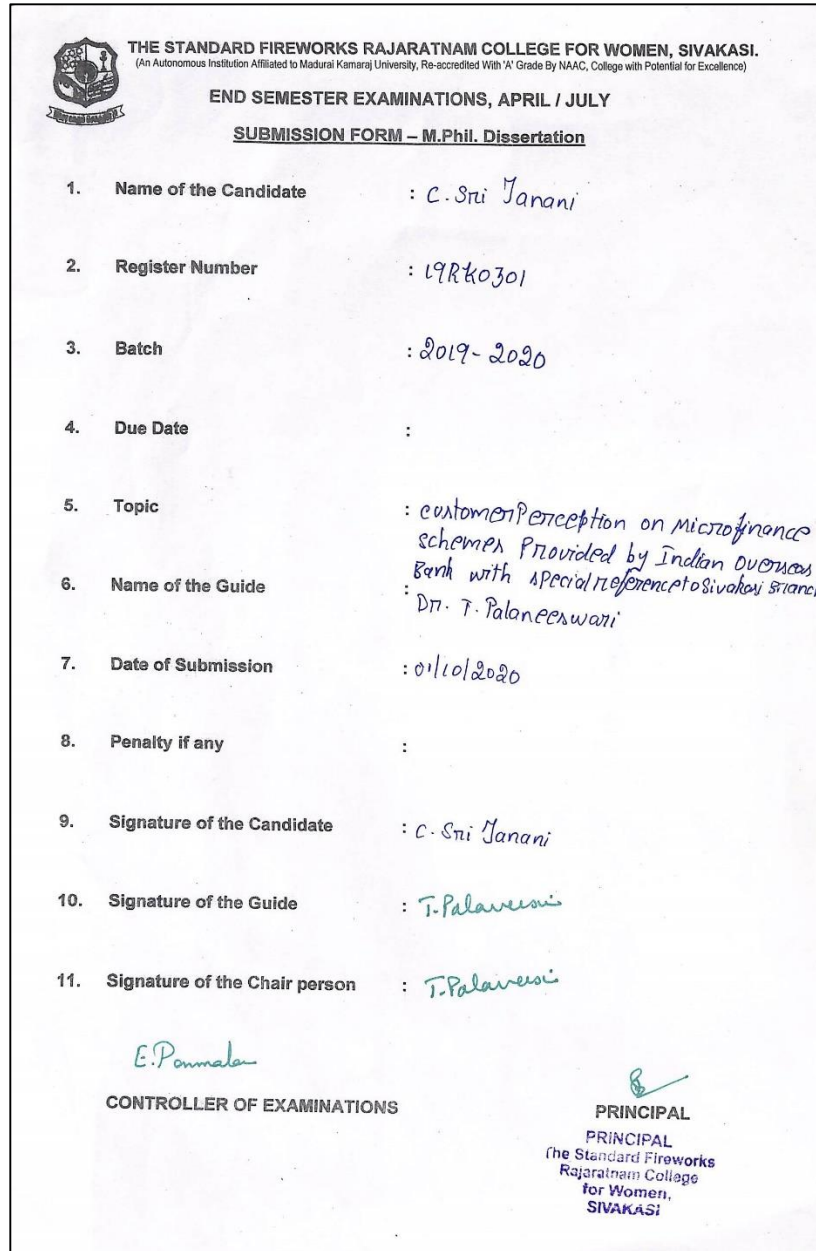 THE STANDARD FIREWORKS RAJARATNAM COLLEGE FOR WOMEN, SIVAKASI.
(An Autonomous Institution Affiliated to Madurai Kamaraj University, Re-accredited With 'A' Grade By NAAC, College with Potential for Excellence)
END SEMESTER EXAMINATIONS, APRIL / JULY
SUBMISSION FORM – M.Phil. Dissertation
1. Name of the Candidate : C. Sri Janani
2. Register Number : 19RK0301
3. Batch : 2019-2020
4. Due Date :
5. Topic : customer Perception on Microfinance
schemes Provided by Indian Overseas
Bank with special reference to Sivakasi Branch
6. Name of the Guide : Dr. T. Palaneeswari
7. Date of Submission : 01/10/2020
8. Penalty if any :
9. Signature of the Candidate : C. Sri Janani
10. Signature of the Guide : T. Palaneeswari
11. Signature of the Chair person : T. Palaneeswari
E. Ponmalar
CONTROLLER OF EXAMINATIONS
PRINCIPAL
PRINCIPAL
The Standard Fireworks
Rajaratnam College
for Women,
SIVAKASI